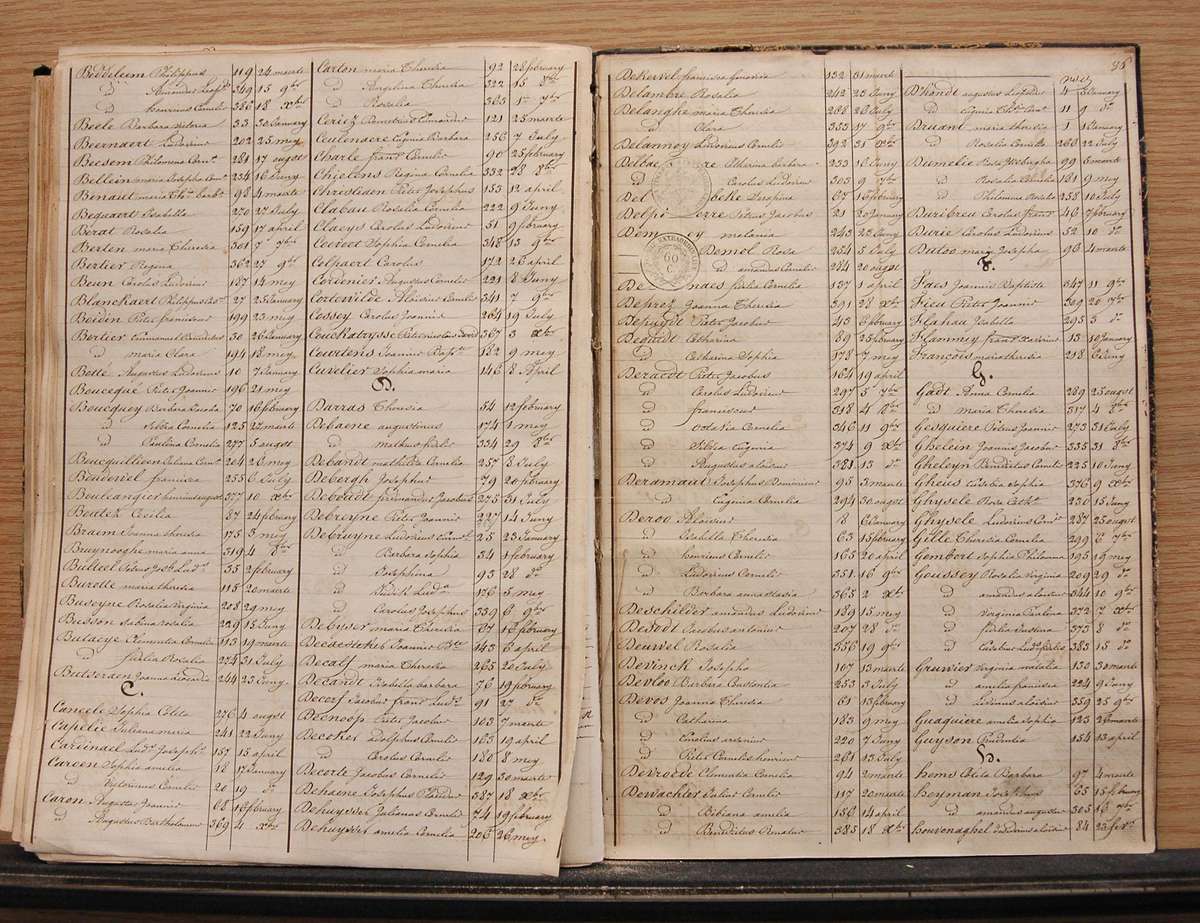 Boddelein Philippus 119 24 maarte
id Amandus 349 15 9bre
id henricus Cornelis 386 18 Xbre
Beele Barbara victoria 33 30 January
Beernaert Ludovicus 202 25 mey
Beesem Philomena 281 17 augst
Bellein maria Josepha 234 16 Juny
Benaut maria 98 4 maarte
Bequaert Isabella 270 27 July
Berat Rosalia 159 17 april
Berten maria Theresia 301 7 7bre
Bertier Regina 362 27 9bre
Beun Carolus Ludovicus 187 14 mey
Blanckaert Philippus 27 25 January
Boidin Petrus franciscus 199 23 mey
Bertier Emmanuel Benedictus 30 26 January
id maria Clara 194 18 mey
Botte Augustus Ludovicus 10 7 January
Boucqué Pieter Joannes 196 21 mey
Boucquey Barbara 70 16 february
id Silvia Cornelia 125 27 maarte
id Paulina Cornelia 277 5 augst
Boucquillieon Juliana 204 26 mey
Boudewel francisca 255 6 July
Boulangier 377 10 Xbre
Boutez Cecilia 87 24 february
Braem Joanna theresia 175 3 mey
Bruynooghe maria anna 319 4 8bre
Bulteel 35 2 february
Burotte maria theresia 115 20 maarte
Buseyne Rosalia Virginia 208 29 mey
Busson Sabina rosalia 229 15 Juny
Butaeye Clementia Cornelia 113 19 maarte
id Julia Rosalia 274 31 July
Butseraen Joanna 244 23 Juny
C.
Cancele Sophia Coleta 276 4 augst
Capelie Juliana maria 241 22 Juny
Cardinael Josephus 157 15 april
Careen Sophia amelia 18 17 January
id Victorinus Cornelis 20 19 do
Caron Augustus Joannes 68 16 february
id Augustus Bartholomeus 369 4 Xbre
Carton maria Theresia 92 28 february
id Angelina Theresia 322 15 8bre
id Rosalia 365 1 7bre
Ceriez Demetrius 121 25 maarte
Ceulenaere Eugenia Barbara 256 7 July
Charle Cornelis 90 25 february
Chielens Regina Cornelia 332 28 8bre
Christiaen Pieter Josephus 153 12 april
Clabau Rosalia Cornelia 222 9 Juny
Claeys Carolus Ludovicus 51 9 february
Cocidot Sophia Cornelia 348 13 9bre
Colpaert Carolus 172 26 april
Cordenier Augustus Cornelis 221 8 Juny
Cortewilde Aloisius Cornelis 341 7 9bre
Cossey Carolus Joannes 264 19 July
Couckatrysse 367 3 Xbre
Courtens Joannes 182 9 mey
Cuvelier Sophia maria 146 8 april
D.
Darras Theresia 54 12 february
Debaene augustinus 174 1 mey
id 334 29 8bre
Debandt mathilda Cornelia 257 8 July
Debergh Josephus 79 20 february
Deboudt ferdinandus Jacobus 275 31 July
Debruyne Pieter Joannes 227 14 Juny
Debruyne Ludovicus 25 23 January
id Barbara Sophia 34 1 february
id Josephina 93 28 do
id 126 3 mey
id Carolus Josephus 339 6 9bre
Debyser maria Theresia 67 16 february
Joannes 143 8 april
Decalf maria Theresia 265 20 July
Decandt Isabella barbara 76 19 february
Decorf Jacobus 91 27 do
Decnoop Pieter Jacobus 103 7 maarte
Decoker Adolphus Cornelis 163 19 april
id Carolus Cornelis 180 8 mey
Decorte Jacobus Cornelis 129 30 maarte
Dehaene Josephus 387 18 Xbre
Dehuysser Julianus Cornelis 74 19 february
Dehuysser amelia Cornelia 206 26 mey
86
Dekervel francisca 132 31 maart
Delambre Rosalia 242 23 Juny
Delanghe maria Theresia 268 26 July
id Clara 353 17 9bre
Delannoy Ludovicus Cornelis 392 31 Xbre
Catharina barbara 233 16 Juny
id Carolus Ludovicus 303 9 7bre
Serafina 67 16 february
Petrus Jacobus 21 20 January
melania 243 23 Juny
Demol Rosa 254 5 July
id amandus Cornelis 284 20 augst
Silvia Cornelia 137 1 april
Deprez Joanna Theresia 391 28 Xbre
Depuydt Pieter Jacobus 43 6 february
Dequidt Catharina 89 25 february
id Catharina Sophia 178 7 mey
Deraedt Pieter Jacobus 164 19 april
id Carolus Ludovicus 297 5 7bre
id franciscus 318 4 8bre
id Cornelia 346 11 9bre
id Silvia Eugenia 374 9 Xbre
id Augustus aloisius 381 13 do
Deramaut Josephus Dominicus 95 3 maarte
id Eugenia Cornelia 294 30 augst
Deroo Aloisius 8 6 January
id Isabella Theresia 63 15 february
id henricus Cornelis 165 20 april
id Ludovicus Cornelis 351 16 9bre
id Barbara anastasia 365 2 Xbre
Deschilder amandus Ludovicus 189 15 mey
Desodt Jacobus antonius 207 28 do
Deuwel Rosalia 356 19 9bre
Devinck Josepha 107 13 maarte
Devloo Barbara Constantia 253 3 July
Devos Joanna Theresia 61 13 february
id Catharina 183 9 mey
id Carolus 220 7 Juny
id Pieter Cornelis henricus 261 13 July
Devroede Clementia Cornelia 94 2 maarte
Dewachter Julia Cornelia 117 20 maarte
id Bibiana amelia 156 14 april
id Benedictus Amatus 385 18 Xbre
D'hondt augustus Leopoldus 4 6 January
id Eugenia 11 9 do
Druant maria theresia 1 1 January
id Rosalia Cornelia 266 22 July
Dumelie Rosa 99 5 maarte
id Rosalia Cornelia 181 9 mey
id Philomena Rosalia 258 10 July
Duribreu Carolus 46 7 february
Durie Carolus Ludovicus 52 10 do
Datoo maria Josepha 96 4 maarte
F.
Faes Joannes Baptiste 347 11 9bre
Fieu Pieter Joannes 309 20 7bre
Flahau Isabella 295 3 do
Flammey Xaverius 13 10 January
François maria theresia 218 6 Juny
G.
Gadt Anna Cornelia 289 25 augst
id maria Theresia 317 4 8bre
Gesquiere Petrus Joannes 273 31 July
Ghelein Joannes Jacobus 335 31 8bre
Gheleyn Benedictus Cornelis 225 10 Juny
Gheus Cornelia Sophia 376 9 Xbre
Ghysele Rosa 230 15 Juny
Ghysele Ludovicus 287 23 augst
Gille Theresia Cornelia 299 6 7bre
Gombert Sophia Philomena 195 19 mey
Goussey Rosalia Virginia 209 29 do
id amandus aloisius 344 10 9bre
id Virginia Paulina 372 7 Xbre
id Julia Justina 373 8 do
id 383 15 do
Grauvier Virginia natalia 130 30 maarte
id amelia francisca 224 9 Juny
id Ludovicus aloisius 359 25 9bre
Guaquiere amelia Sophia 123 26 maarte
Guyson Prudentia 154 13 april
H.
hems Coleta Barbara 97 4 maarte
heyman Josephus 65 15 february
id amandus augustus 305 16 7bre
houvenaghel Ludovicus aloisius 84 23
60
C